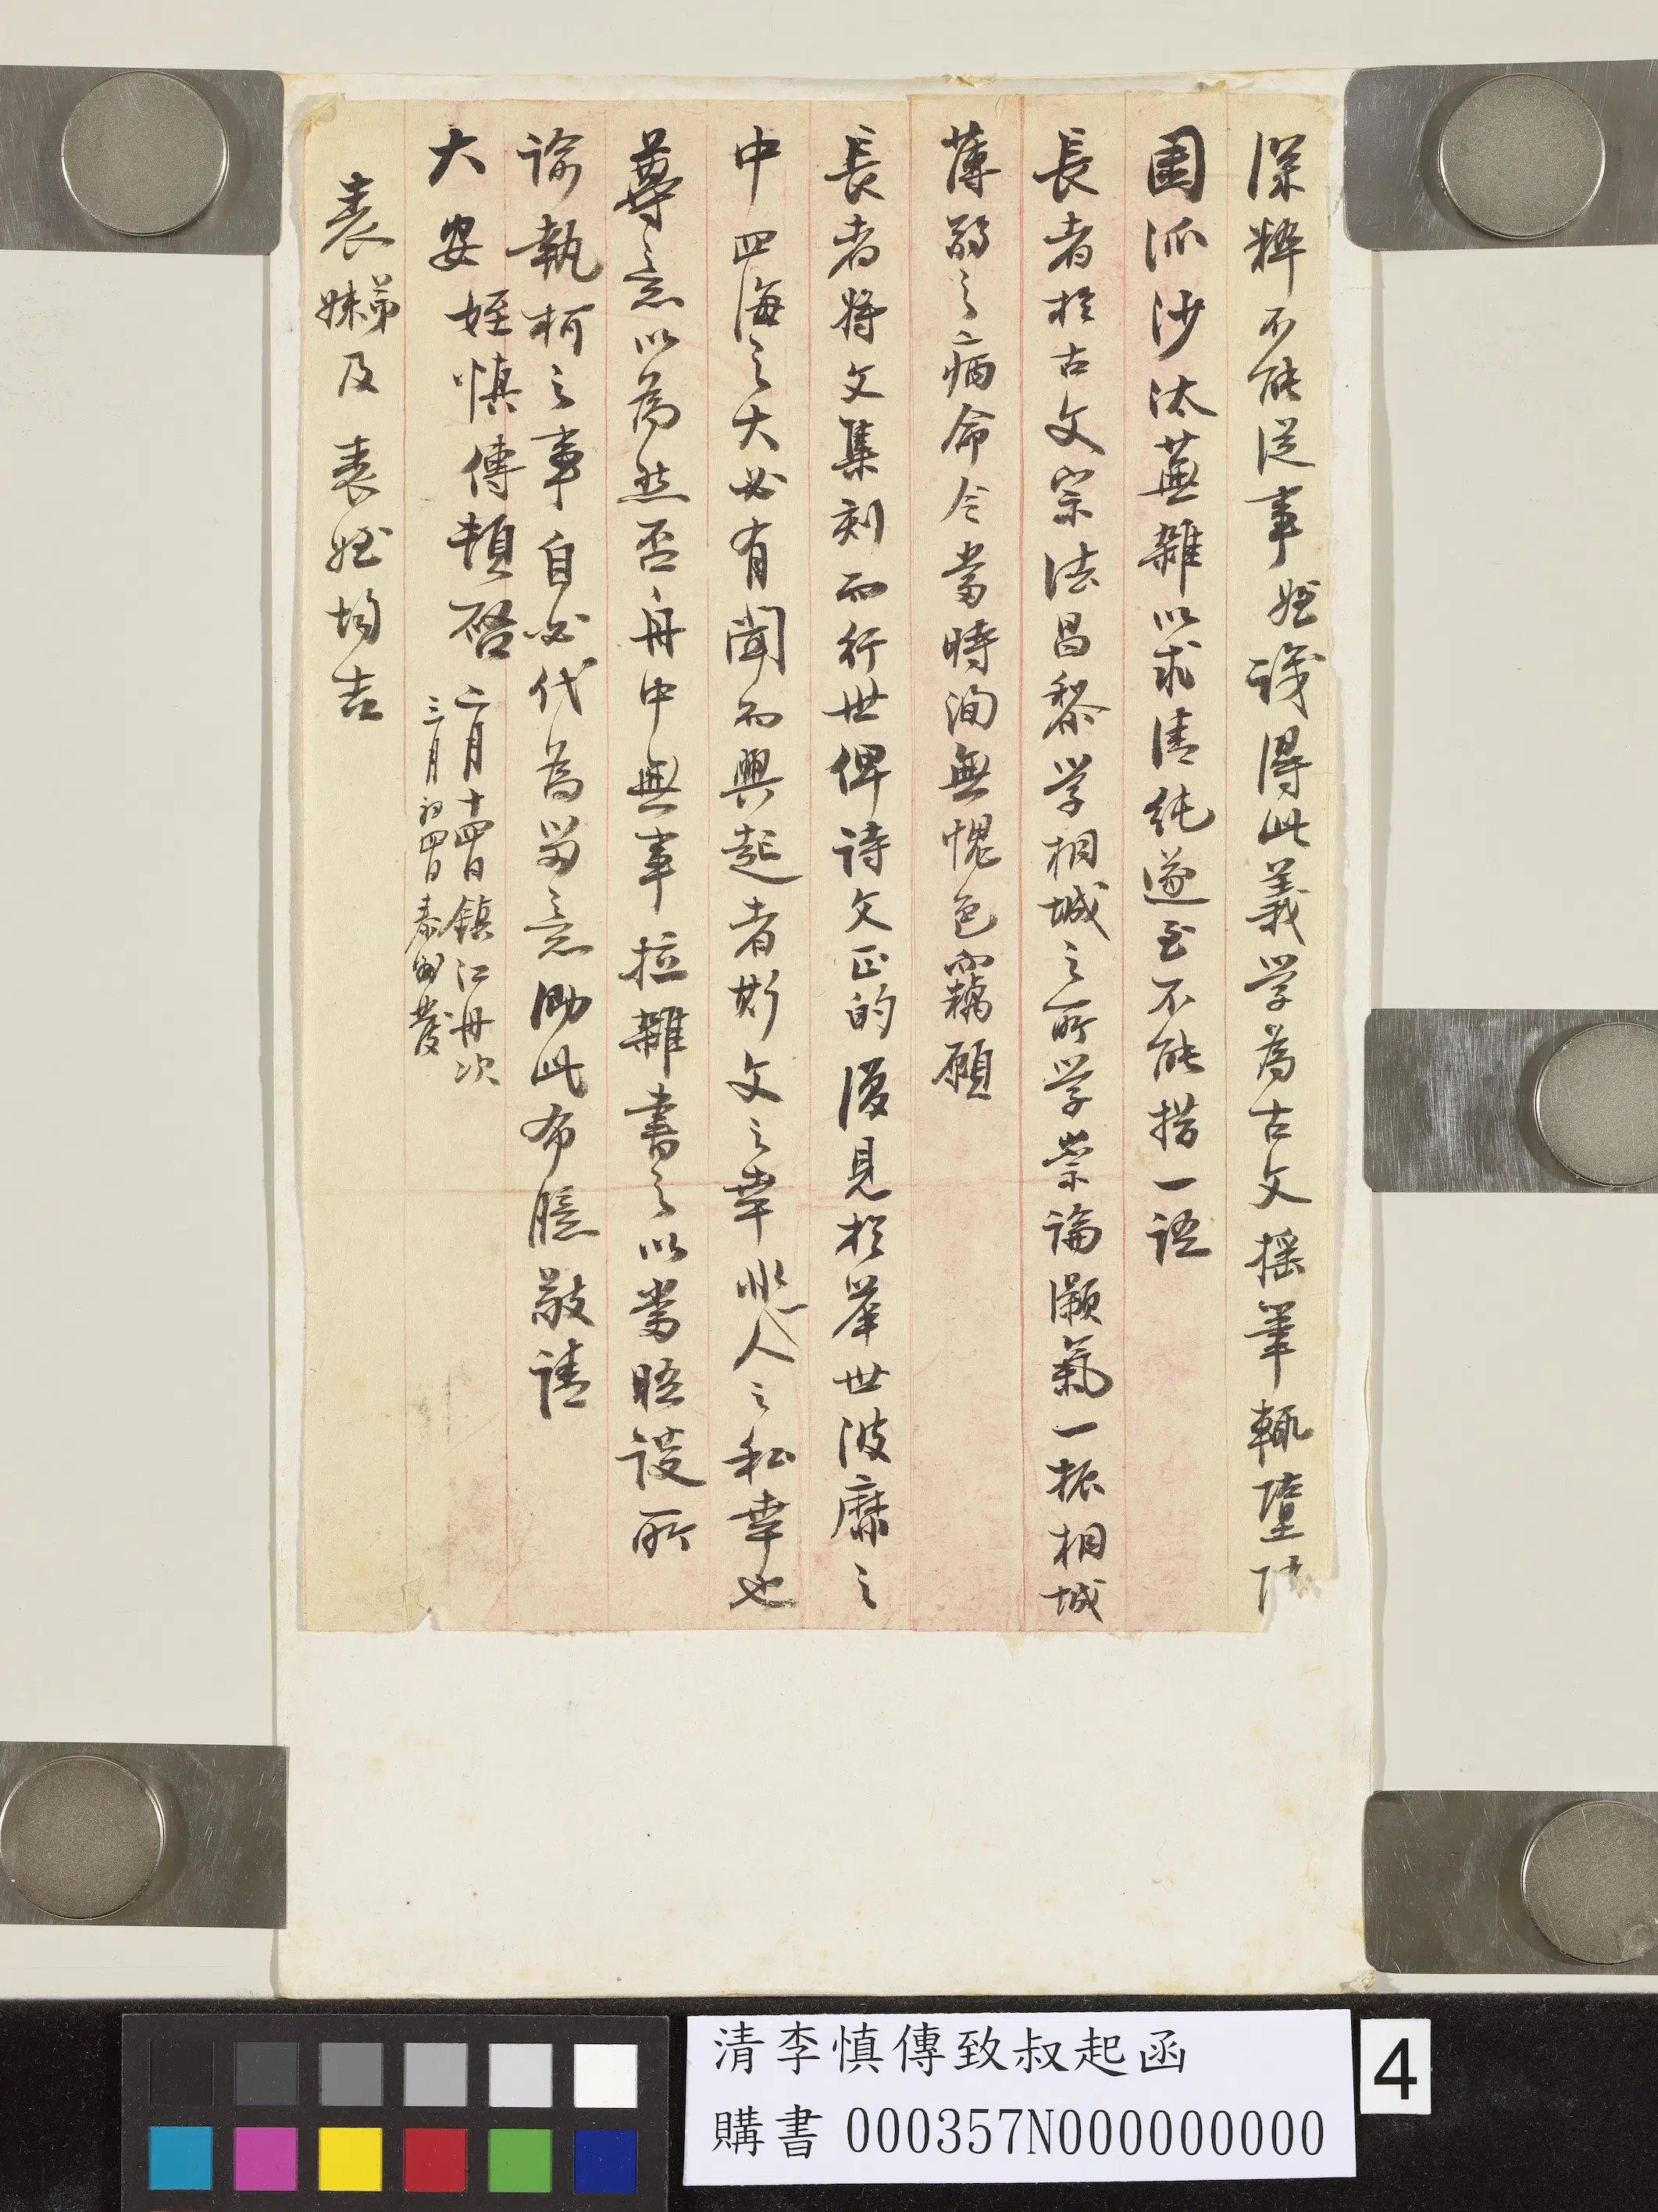 深粹不能從事姪識得此義學為古文搖筆輒墮
圍派沙汰蕪雜以求清純遂至不能措一語
長者於古文宗法昌黎學桐城之所學崇論灝氣一振桐城
薄弱之病命令當時洵無愧色而竊願
長者將文集刻而行世俾詩文正的復見於舉世波靡之
中四海之大必有聞而興起者斯文之幸非一人之私幸也
尊意以為然否舟中無事拉雜書之以當晤談所
諭執柯之事自必代為留意泐此布臆敬請
大安姪慎傳頓啓 二月十四日鎮江舟次
三月初四日泰州發
表弟妹及表姪均吉
清李慎傳致叔起函
購書 000357N000000000
4